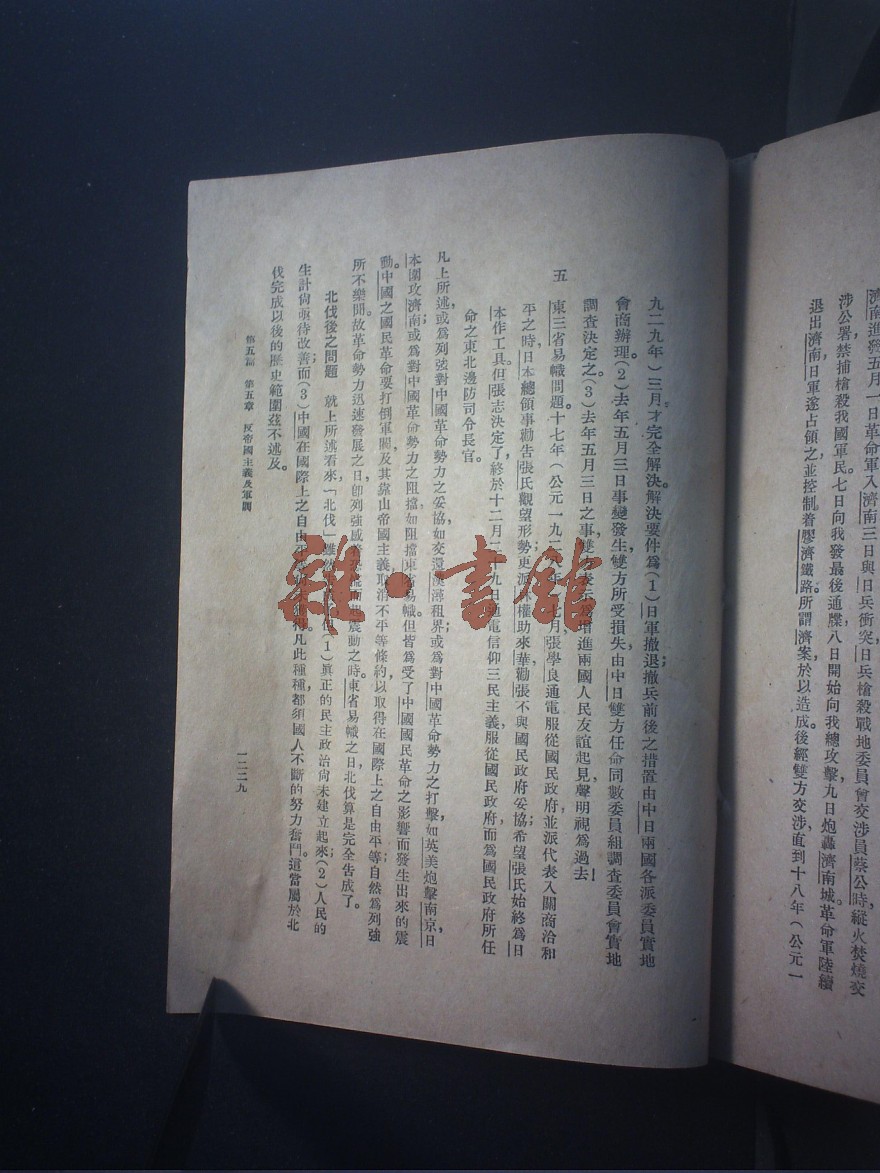 濟南進發五月一日革命軍入濟南三日與日兵衝突日兵槍殺戰地委員會交涉員蔡公時縱火焚燒交
涉公署禁捕槍殺我國軍民七日向我發最後通牒八日開始向我總攻擊九日炮轟濟南城革命軍陸續
退出濟南日軍遂占領之並控制着膠濟鐵路所謂濟案於以造成。後經雙方交涉直到十八年(公元一
九二九年)三月才完全解決。解決要件爲(1)日軍撤退撤兵前後之措置由中日兩國各派委員實地
會商辦理。(2)去年五月三日事變發生雙方所受損失由中日雙方任命同數委員組調查委員會實地
調查決定之。(3)去年五月三日之事雙表示爲增進兩國人民友誼起見聲明視爲過去!
五 東三省易幟問題。十七年(公元一九二八年)七月張學良通電服從國民政府並派代表入關商洽和
平之時日本總領事勸告張氏觀望形勢更派權助來華勸張不與國民政府妥協希望張氏始終爲日
本作工具。但張志決定了終於十二月二十九日通電信仰三民主義服從國民政府而爲國民政府所任
命之東北邊防司令長官。
凡上所述或爲列强對中國革命勢力之妥協如交還漢潯租界;或爲對中國革命勢力之打擊如英美炮擊南京日
本圍攻濟南;或爲對中國革命勢力之阻擋如阻擋東省易幟。但皆爲受了中國國民革命之影響而發生出來的震
動。中國之國民革命要打倒軍閥及其靠山帝國主義取消不平等條約以取得在國際上之自由平等自然爲列强
所不樂聞。故革命勢力迅速發展之日卽列强感着恐慌而起震動之時。東省易幟之日北伐算是完全告成了。
北伐後之問題 就上所述看來「北伐」雖(1)眞正的民主政治尙未建立起來;(2)人民的
生計尙亟待改善;而(3)中國在國際上之自由平獲得。凡此種種都須國人不斷的努力奮鬥。這當屬於北
伐完成以後的歷史範圍茲不述及。
第五篇 第五章 反帝國主義及軍閥
一二二九
雜·書館